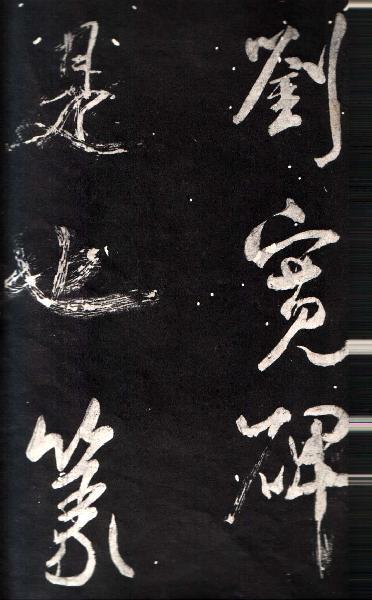 劉寬碑
是也篆